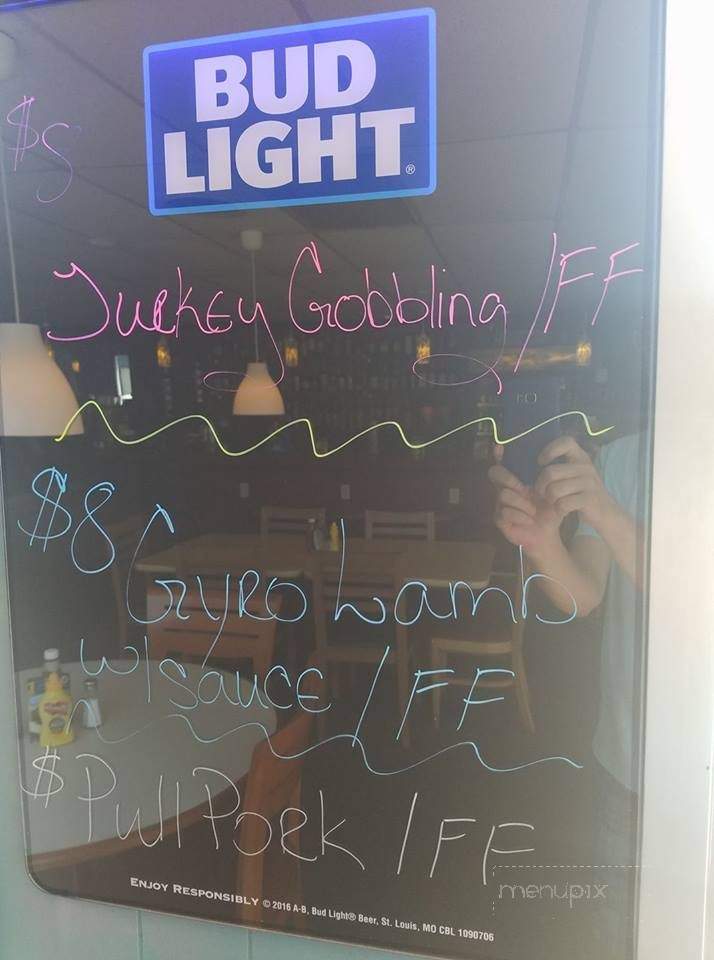 BUD
LIGHT®
$5
Turkey Gobbling /FF
$8
Gyro Lamb
w/sauce / FF
$ Pull Pork / FF
ENJOY RESPONSIBLY © 2016 A-B, Bud Light® Beer, St. Louis, MO CBL 1090706
menupix